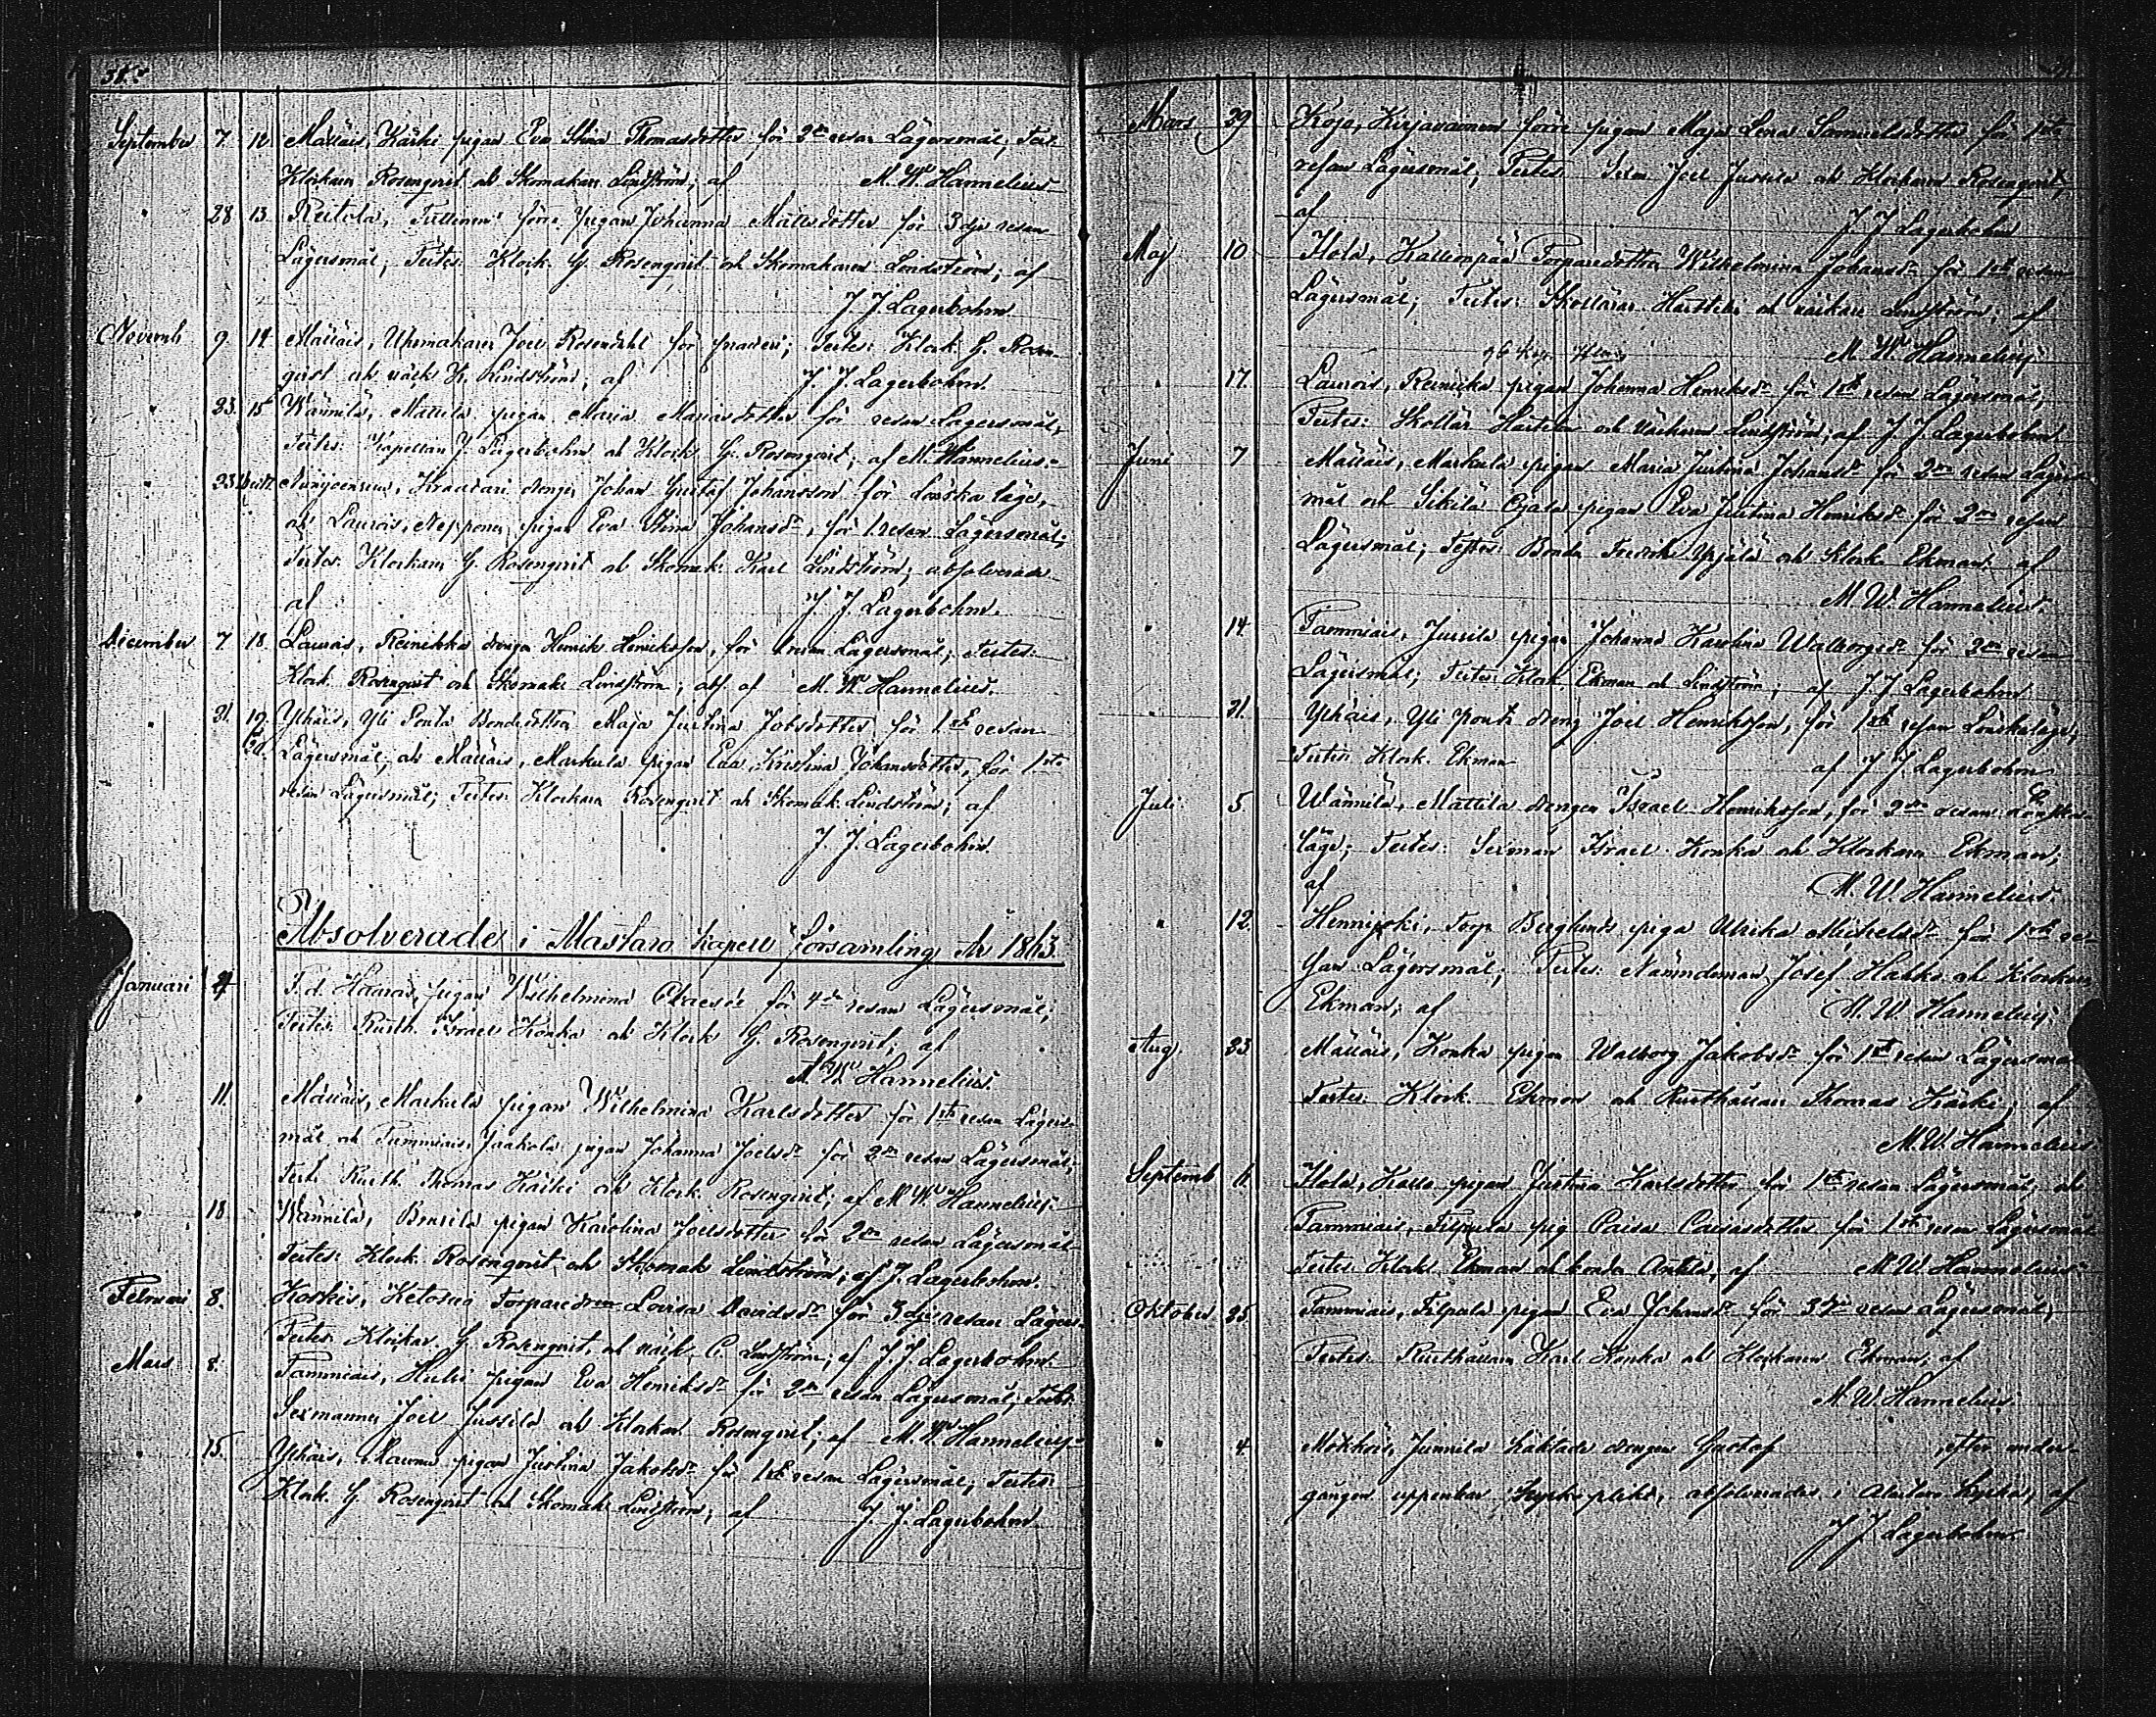 58.
September 7. 12. Mällais, Kärki pigan Eva Stina Thomasdotter för 2dra resan Lägersmål; Test:
Klockarn Rosenqvist och Skomakarn Lindström; af M. W. Hannelius
" 28 13. Reitola, förre pigan Johanna Mattsdotter för 3dje resan
Lägersmål; Testes: Klock. G. Rosenqvist och Skomakaren Lindström; af
J. J. Lagerbohm
Novemb 9. 14. Mällais, Uhrmakaren Joel Rosendahl för ; Testes: Klock. G. Rosen-
qvist och väck. K. Lindström; af J. J. Lagerbohm.
" 23. 15 Wännilä, Mattila pigan Maria Mariasdotter för resan Lägersmål,
Testes: Kapellan J. Lagerbohm och Klock G. Rosenqvist; af M. W. Hannelius.
" 23. Kraatari drengen Johan Gustaf Johansson för Lönska läge,
och Laurois, Nepponen pigan Eva Stina Johansdr, för 1. resan Lägersmål;
Testes: Klockarn G. Rosenqvist och Skomak: Karl Lindström; absolverade
af J. J. Lagerbohm.
December 7. 18. Laurois, Reinikka drengen Henrik Henriksson, för 1 resan Lägersmål; Testes:
Klock. Rosenqvist och Skomak: Lindström; abs. af M. W. Hannelius.
" 21. 19. Yhäis, Yli Ponta Bondedottren Maja Justina Jobsdotter för 1sta resan
20. Lägersmål; och Mällais, Markula pigan Eva Kristina Johansdotter, för 1sta
resan Lägersmål; Testes: Klockarn Rosenqvist och Skomak. Lindström; af
J. J. Lagerbohm.
Absolverade i Maskara kapell församling År 1863
Januari 4 F. d. Haaras pigan Wilhelmina för 4de resan Lägersmål;
Testes: Kyrkh. Israel Konka och Klock G. Rosenqvist; af
M. W. Hannelius.
" 11. Mällais, Markula pigan Wilhelmina Karlsdotter för 1sta resan Lägers-
mål och Tammiais, Jaakola pigan Johanna Joelsdr för 2dra resan Lägersmål;
Test: Thomas Kärki och Klock. Rosenqvist; af M. W. Hannelius.
" 18. Wännilä, pigan Karolina Joelsdotter för 2dra resan Lägersmål
Testes: Klock. Rosenqvist och Skomak Lindström; af J. J. Lagerbohm.
Februari 8. Korkis, Ketosuo Lovisa Davidsdr för 3dje resan Lägers-
Testes: Klockar. G. Rosenqvist, och väck. C. Lindström; af J. J. Lagerbohm.
Mars 8. Tammiais, pigan Eva Henriksdr för 2dra resan Lägersmål; Test:
Sexmannen Joel Jussila och Klockar. Rosenqvist; af M. W. Hannelius.
" 15. Yhäis, pigan Justina Jakobsdr för 1sta resan Lägersmål; Testes:
Klock. G. Rosenqvist och Skomak Lindström; af J. J. Lagerbohm
Mars 29 Koja, förre pigan Maja Lena Samuelsdotter för 1sta
resan Lägersmål; Testes: Joel Jussila och Klockaren Rosenqvist,
af J. J. Lagerbohm
Maj 10 Hola, Kallionpää Torparedottren Wilhelmina Johansdr för 1sta resan
Lägersmål; Testes: Skollärar. och väckare Lindström; af
M. W. Hannelius
" 17. Laurois, Reinikka pigan Johanna Henriksdr för 1sta resan Lägersmål,
Testes: Skollär och väckaren Lindström; af J. J. Lagerbohm
Juni 7 Mällais, Markula pigan Maria Justina Johansdr för 2dra resan Lägers-
mål och Sikilä Ojala pigan Eva Justina Henriksdr för 2dra resan
Lägersmål; Testes: Bonden Fredrik Yrjälä och Klock. Ekman: af
M. W. Hannelius.
" 14. Tammiais, Jussila pigan Johanna Karolina Walborgsdr för 2dra resan
Lägersmål; Testes: Klock. Ekman och Lindström; af J. J. Lagerbohm
" 21. Yhäis, Yli ponta dreng Joel Henriksson, för 1sta resan Lönskaläge;
Testes: Klock. Ekman af J. J. Lagerbohm
Juli 5. Wännilä, Mattila drengen Israel Henriksson, för 2dra resan Lönska
läge; Testes: Sexman Israel Konka och Klockarn Ekman;
af M. W. Hannelius.
" 12. Hennijoki, Torp Berglunds piga Ulrika Michelsdr för 1sta re-
san Lägersmål; Testes: Nämndeman Josef och Klockarn
Ekman; af M. W. Hannelius.
Aug. 23 Mällais, Konka pigan Walborg Jakobsdr för 1sta resan Lägersmål
Testes: Klock. Ekman och Thomas Kärki; af
M. W. Hannelius
Septemb 6. Hola, pigan Justina Karlsdotter för 1sta resan Lägersmål; och
Tammiais, Filpula pig Caisa Caisasdotter för 1sta resan Lägersmål
Testes: Klock. Ekman och bonden Anttila, af M. W. Hannelius
Oktober 25. Tammiais, Filpula pigan Eva Johansdr för 3dje resan Lägersmål;
Testes: Karl Konka och Klockaren Ekman; af
M. W. Hannelius
" 4. Junnila drengen Gustaf efter under-
gången uppenbar Kyrkoplikt, absolverades i Kyrka, af
J. J. Lagerbohm